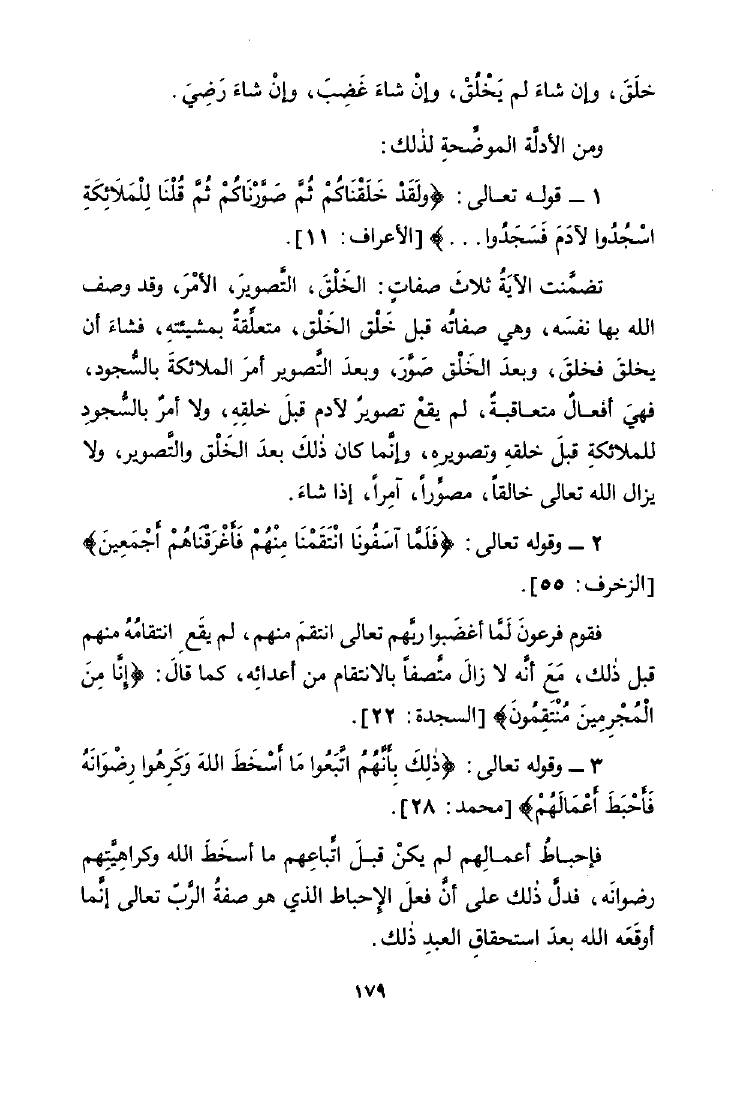 خلَقَ، وإن شاءَ لم يَخْلُقْ، وإنْ شاءَ غَضِبَ، وإنْ شاءَ رَضِيَ.
ومن الأدلَّة الموضِّحةِ لذٰلك:
١ ــ قولـه تعـالى: ﴿ولَقَدْ خَلَقْنَاكُمْ ثُمَّ صَوَّرْنَاكُمْ ثُمَّ قُلْنَا لِلْمَلَائِكَةِ
اسْجُدُوا لآدَمَ فَسَجَدُوا...﴾ [الأعراف: ١١].
تضمَّنت الآيَةُ ثلاثَ صفاتٍ: الخَلْقَ، التَّصويرَ، الأمْرَ، وقد وصف
الله بها نفسَه، وهي صفاتُه قبل خَلْق الخَلْق، متعلِّقةً بمشيئتهِ، فشاءَ أن
يخلقَ فخلقَ، وبعدَ الخَلْق صَوَّرَ، وبعدَ التَّصوير أمرَ الملائكةَ بالسُّجود،
فهيَ أفعـالٌ متعـاقبـةٌ، لم يقعْ تصويرٌ لآدم قبلَ خلقِهِ، ولا أمرٌ بالسُّجودِ
للملائكةِ قبلَ خلقهِ وتصويرهِ، وإنَّما كان ذٰلكَ بعدَ الخَلْق والتَّصوير، ولا
يزال الله تعالى خالقاً، مصوِّراً، آمِراً، إذا شاءَ.
٢ ــ وقوله تعالى: ﴿فَلَمَّا آسَفُونَا انْتَقَمْنَا مِنْهُمْ فَأَغْرَقْنَاهُمْ أَجْمَعِينَ﴾
[الزخرف: ٥٥].
فقوم فرعونَ لَمَّا أغضَبوا ربَّهم تعالى انتقمَ منهم، لم يقَعِ انتقامُهُ منهم
قبل ذٰلك، مَعَ أنَّه لا زالَ متَّصفاً بالانتقام من أعدائِه، كما قالَ: ﴿إِنَّا مِنَ
الْمُجْرِمِينَ مُنْتَقِمُونَ﴾ [السجدة: ٢٢].
٣ ــ وقوله تعالى: ﴿ذٰلِكَ بِأَنَّهُمُ اتَّبَعُوا مَا أَسْخَطَ اللهَ وَكَرِهُوا رِضْوَانَهُ
فَأَحْبَطَ أَعْمَالَهُمْ﴾ [محمد: ٢٨].
فإحبـاطُ أعمـالِهم لم يكنْ قبـلَ اتِّباعِهم ما أسخَطَ الله وكراهيَّتِهم
رضوانَه، فدلَّ ذٰلك على أنَّ فعلَ الإحباط الذي هو صفةُ الرَّبِّ تعالى إنَّما
أوقَعَه الله بعدَ استحقاقِ العبدِ ذٰلك.
١٧٩